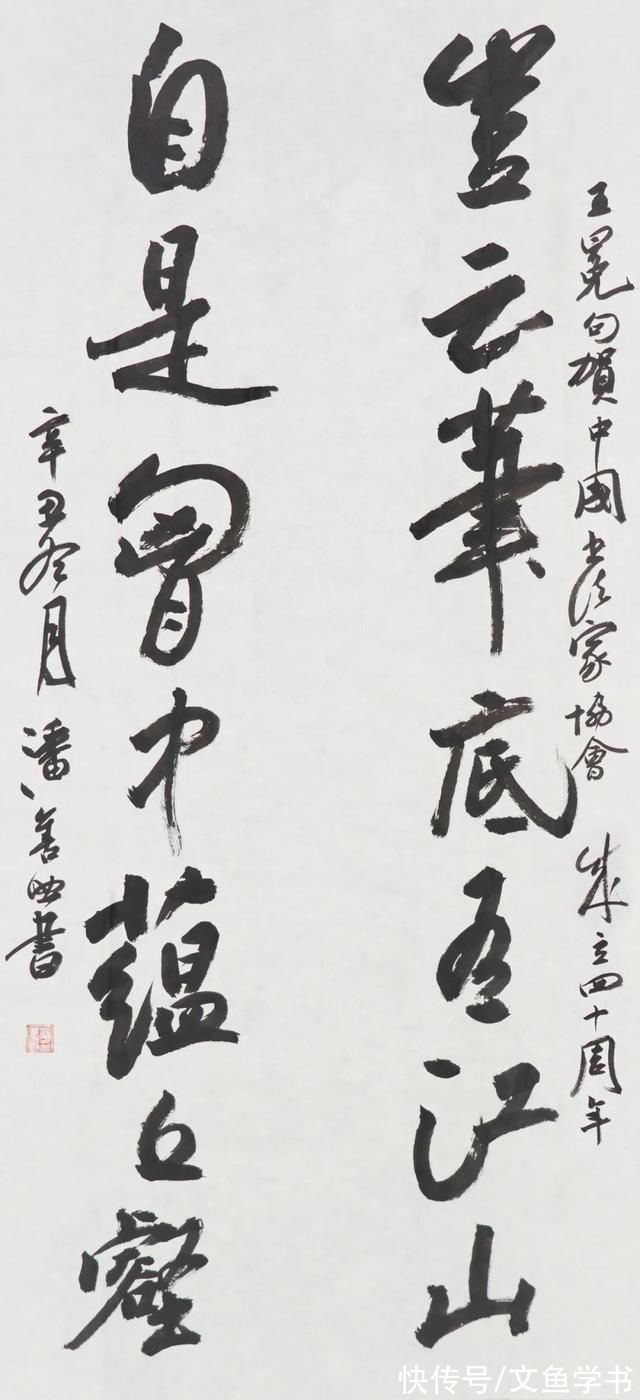 王冕句賀中國书法家協會成立四十周年
豈云筆底有江山
自是胷中蘊丘壑
辛丑冬月潘善助書
快传号/文鱼学书